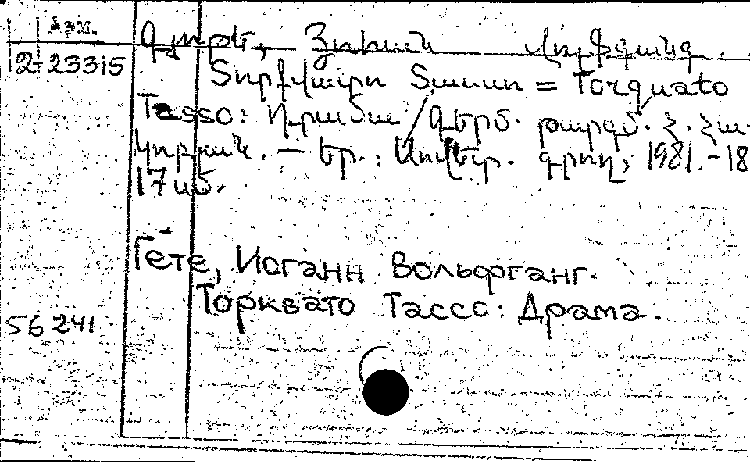 Գյոթե, Յոհան Վոլֆգանգ.
2-23315
Տորկվատո Տասսո = Torquato
Tasso: Դրամա / Գերմ. թարգմ. Հ. Հա-
կոբյան. – Եր.: Սովետ. գրող, 1981.-18
17 սմ.
Гете, Иоганн Вольфганг.
Торквато Тассо: Драма.
56 241